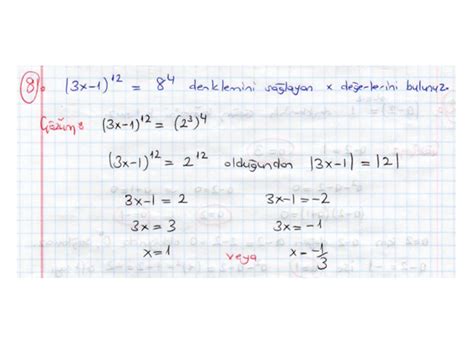 8). (3x-1)¹² = 8⁴ denklemini sağlayan x değerlerini bulunuz.
Çözüm: (3x-1)¹² = (2³)⁴
(3x-1)¹² = 2¹² olduğundan |3x-1| = |2|
3x-1 = 2 3x-1 = -2
3x = 3 3x = -1
x = 1 veya x = -1/3